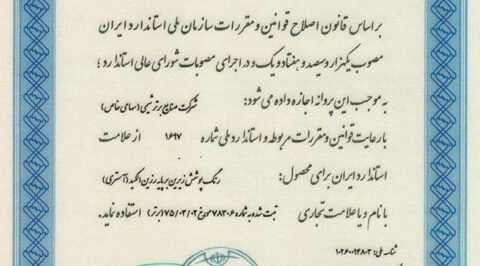 بر اساس قانون اصلاح قوانین و مقررات سازمان ملی استاندارد ایران
مصوب یکهزار و سیصد و هفتاد و یک و در اجرای مصوبات شورای عالی استاندارد؛
به موجب این پروانه اجازه داده می شود: شرکت صنایع برتر شیمی (سهامی خاص)
با رعایت قوانین و مقررات مربوطه و استاندارد ملی شماره ۱۶۹۷ از علامت
استاندارد ایران برای محصول: رنگ پوشش زیرین بر پایه رزین الکید (آستری)
با نام و یا علامت تجاری ثبت شده به شماره ۷۸۳۰۶ مورخ ۷۵/۰۳/۰۲ (برتر) استفاده نماید.
شناسه ملی: ۱۰۲۶۰۰۹۴۸۰۲